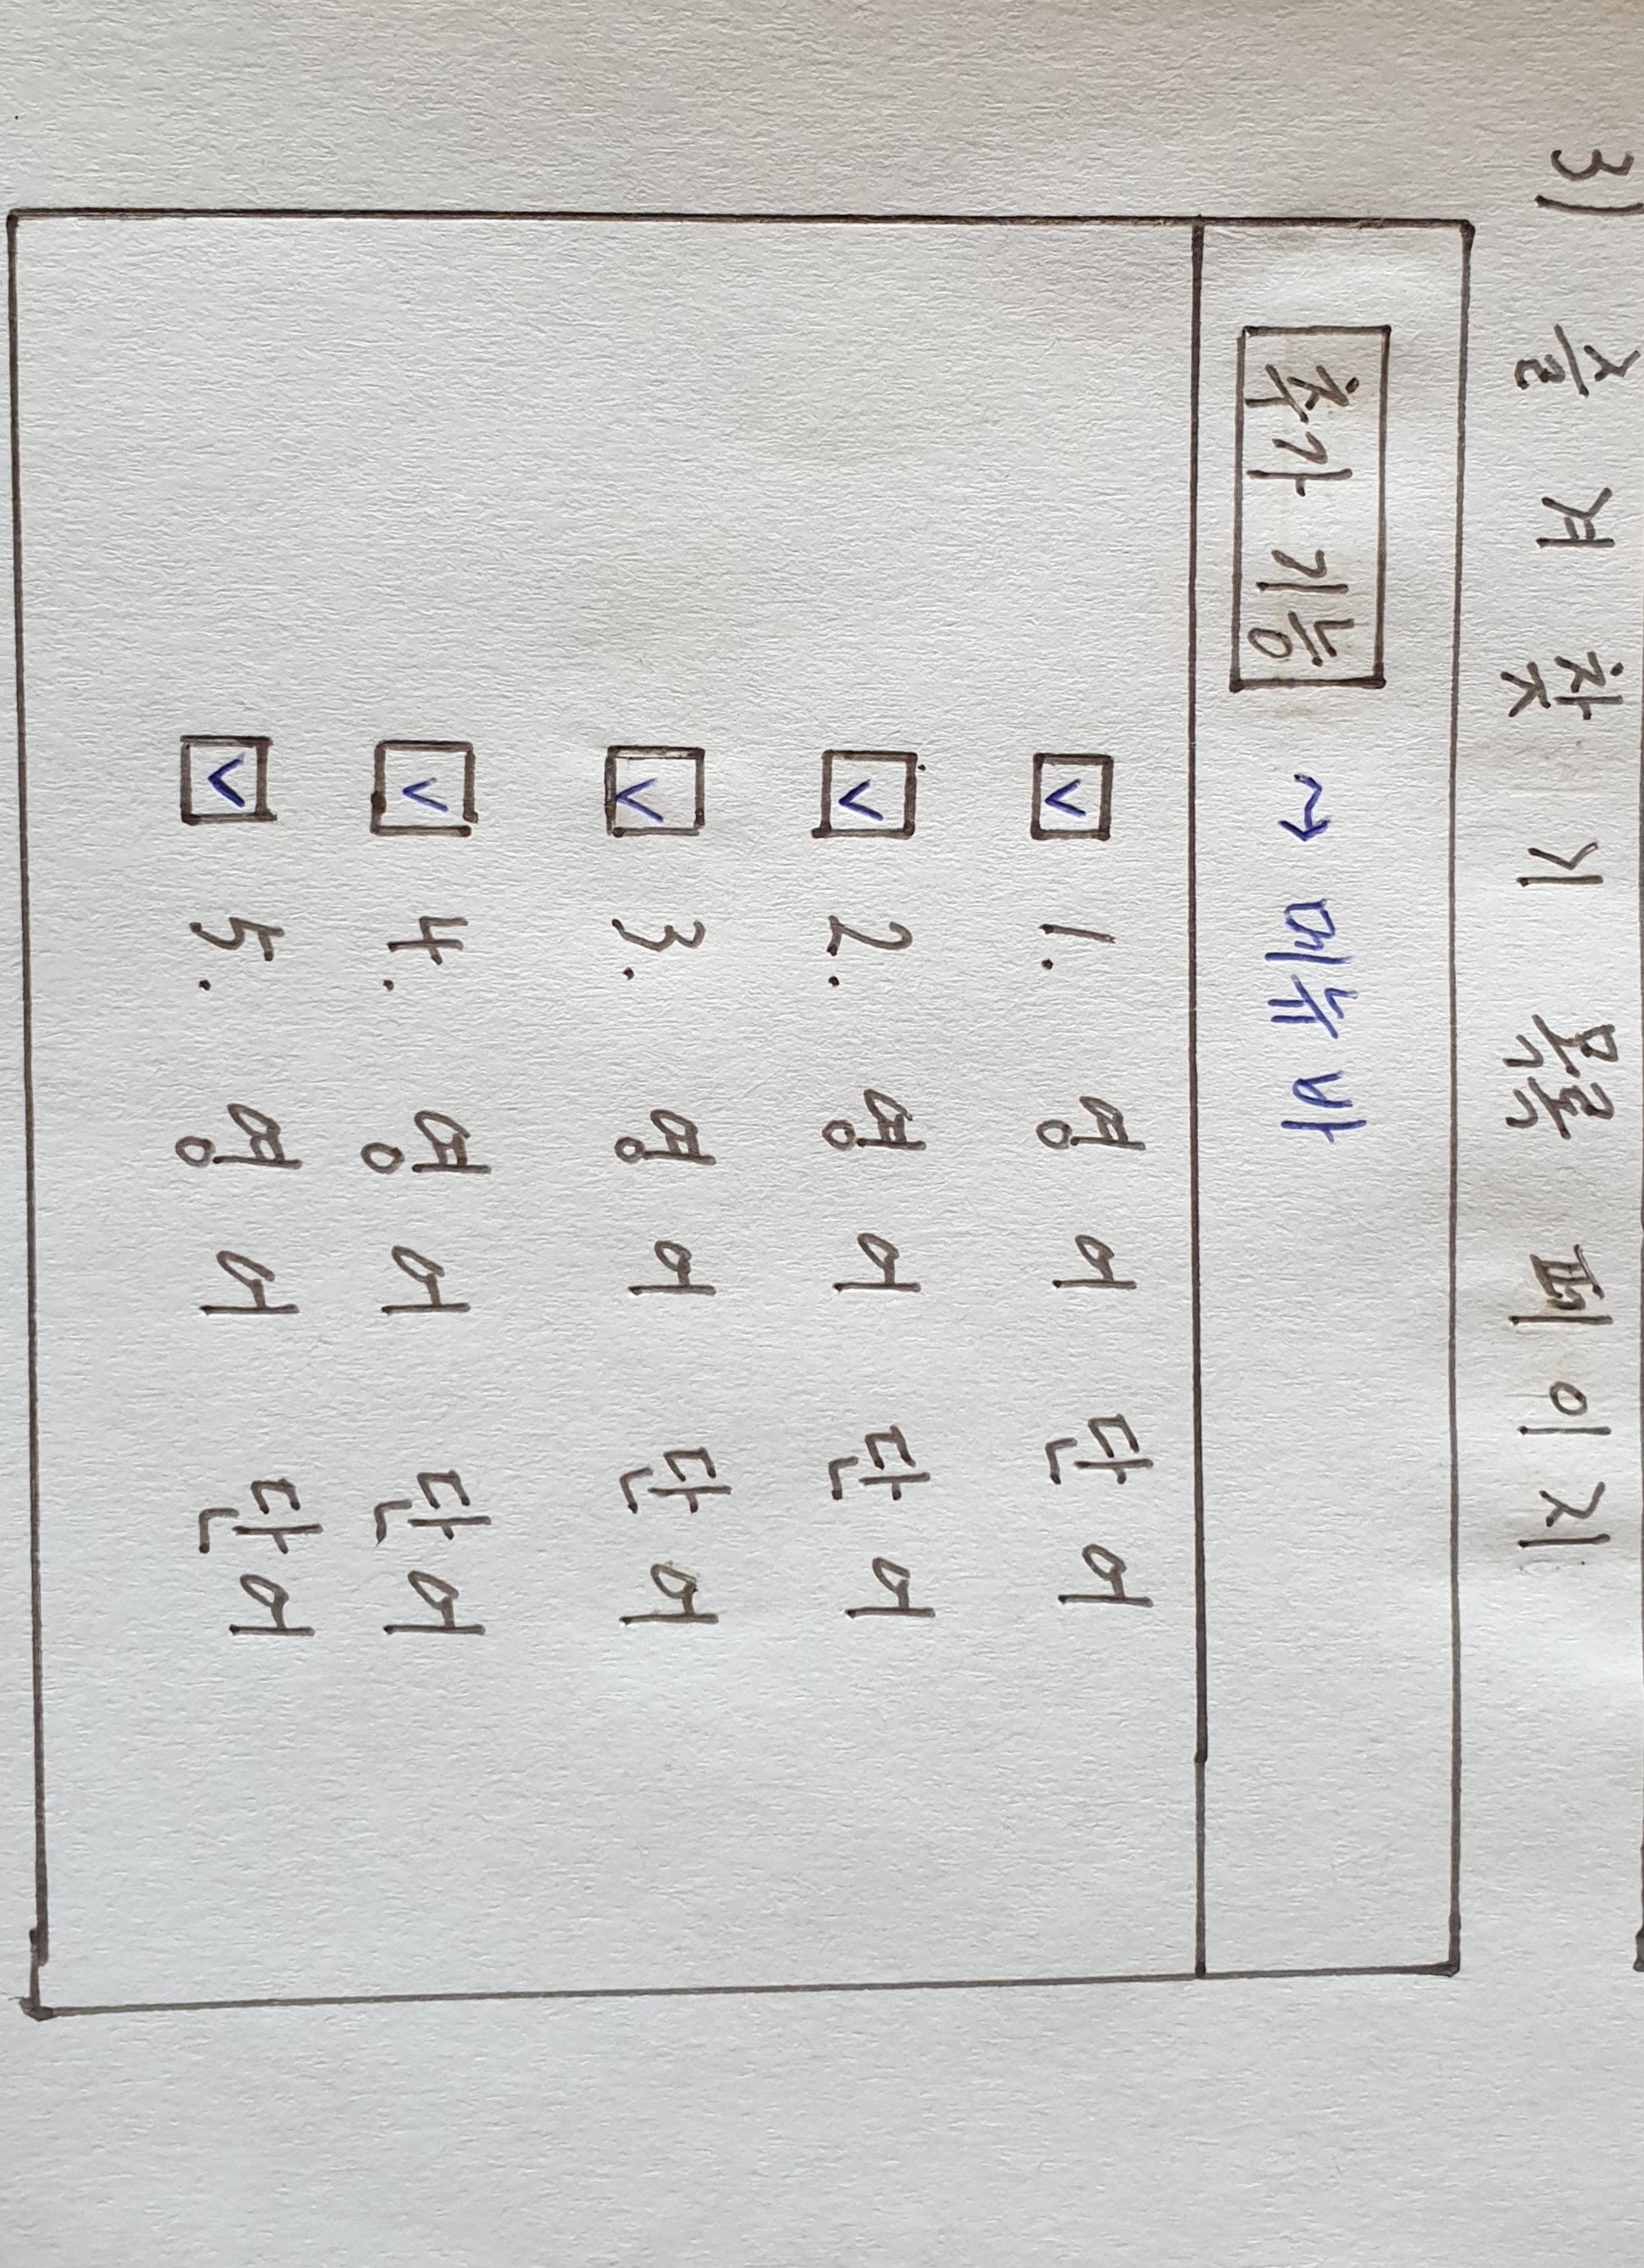 3) 즐겨찾기 목록 페이지
추가 기능 ~> 메뉴바
☑ 1. 영어 단어
☑ 2. 영어 단어
☑ 3. 영어 단어
☑ 4. 영어 단어
☑ 5. 영어 단어